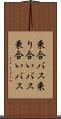 乗合バス乗
り合いバス
乗合いバス